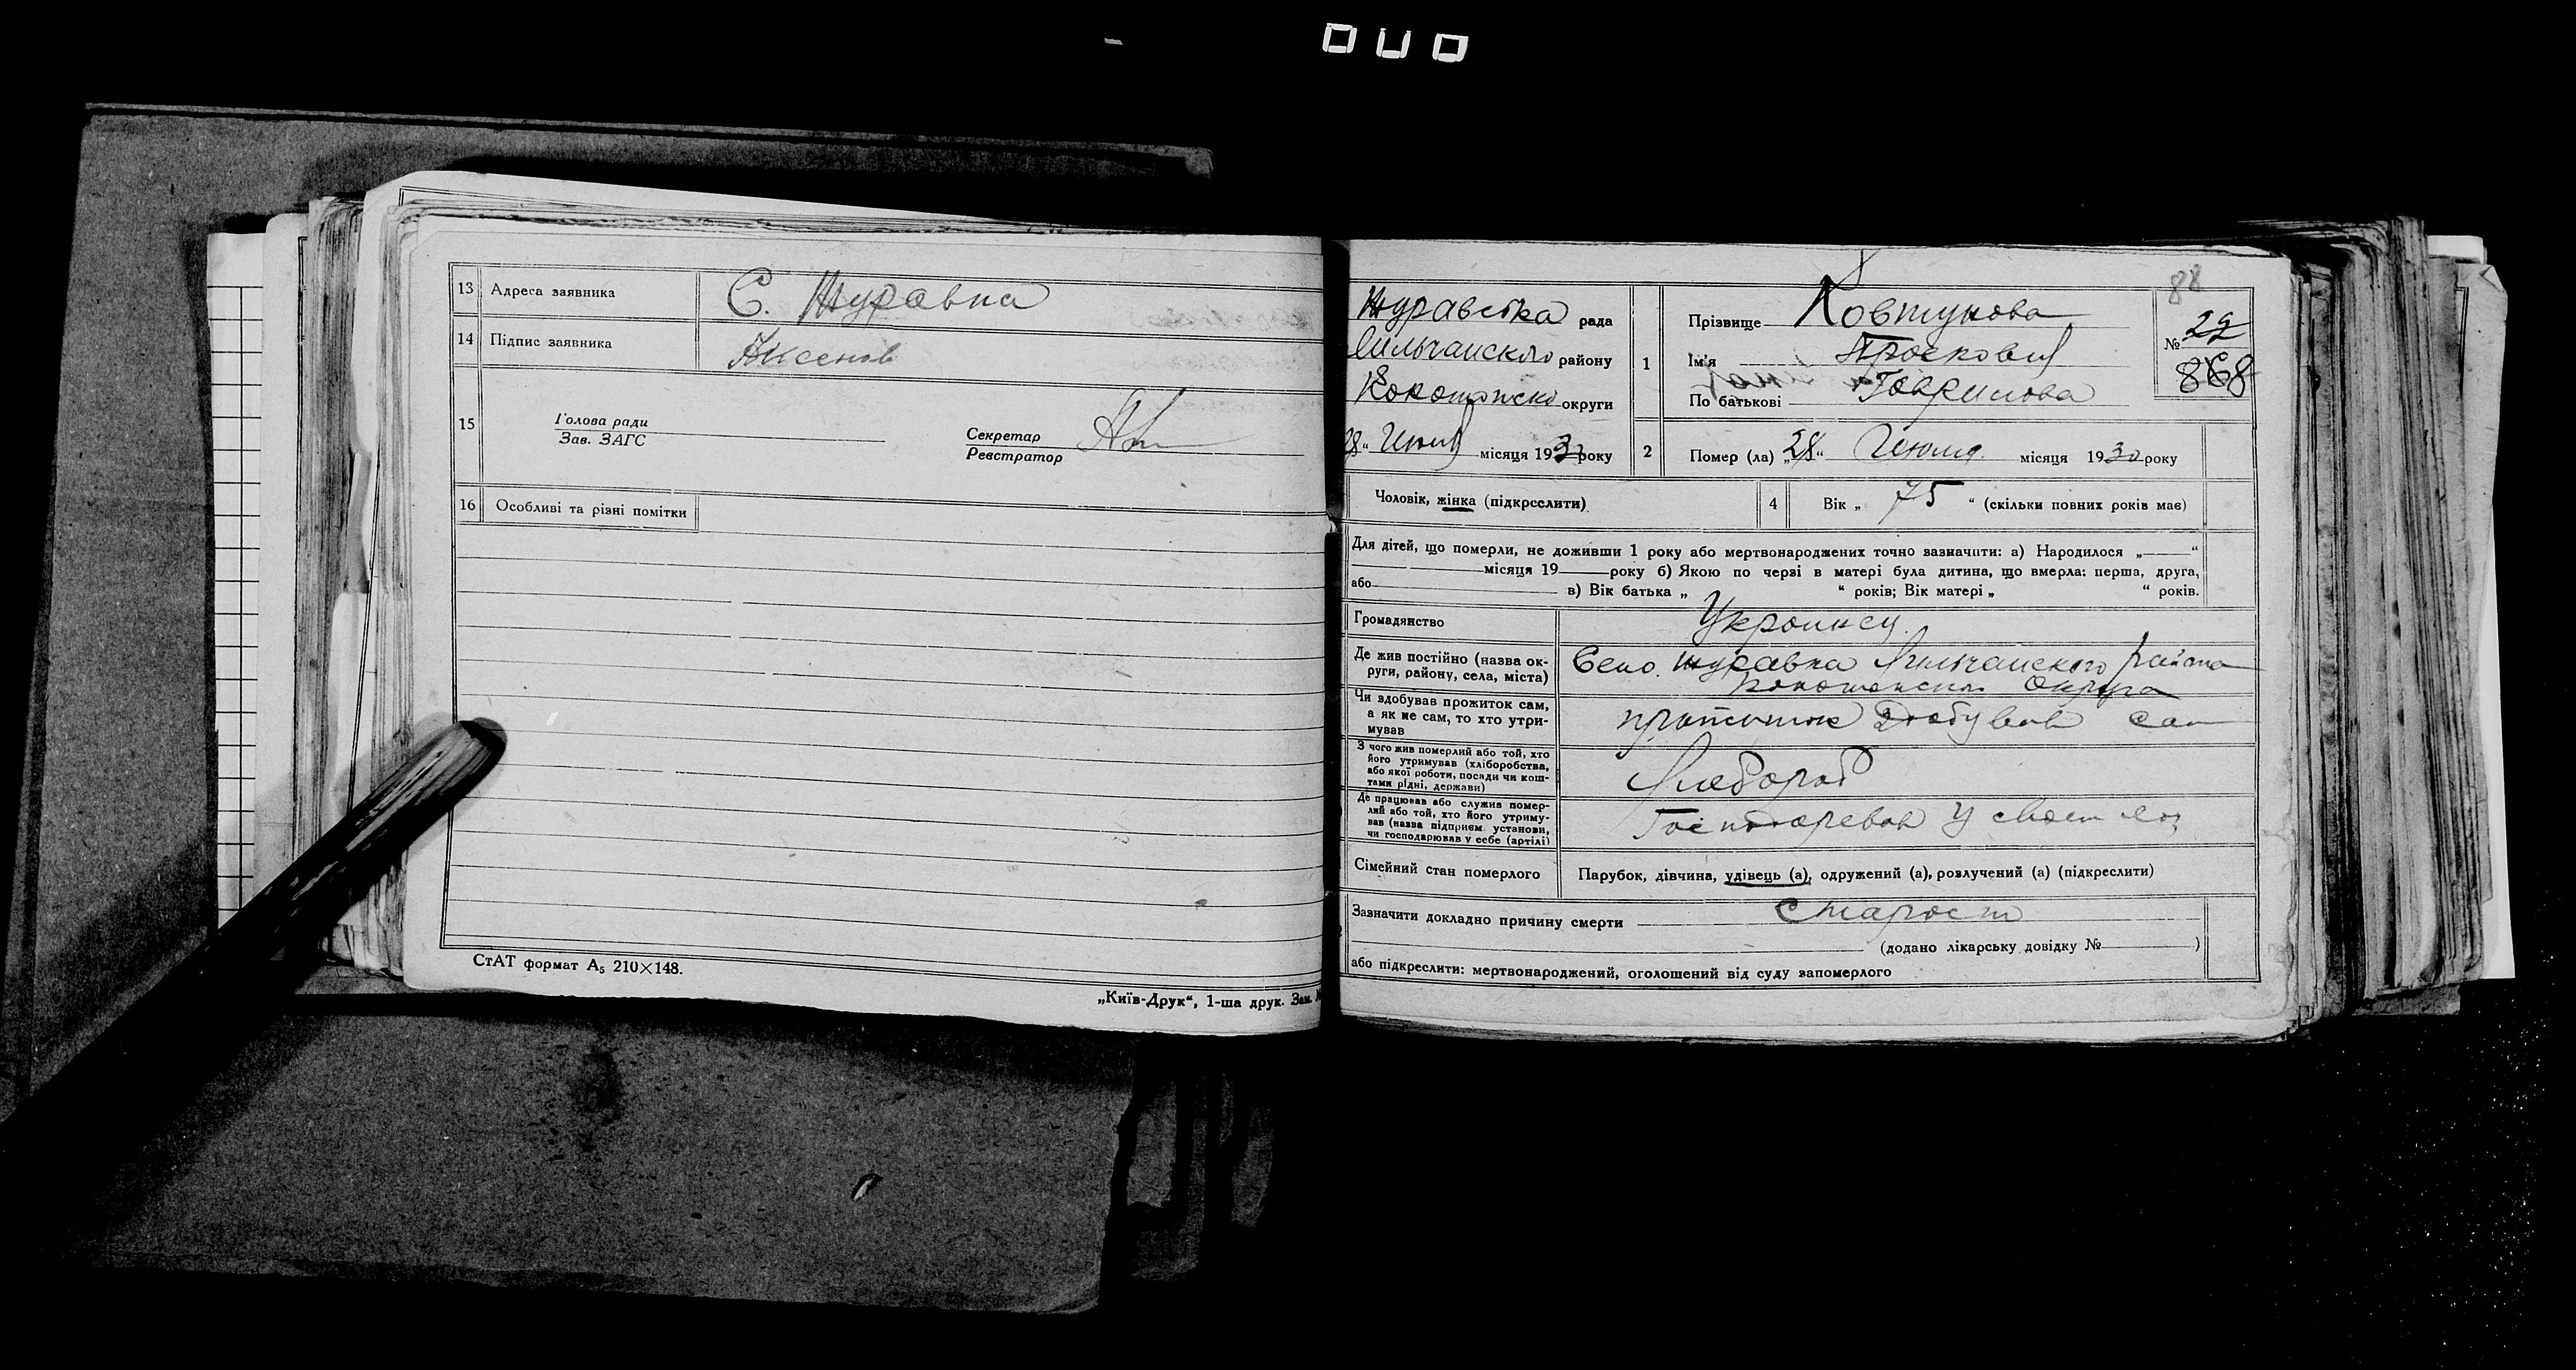 13 Адреса заявника С. Журавка
14 Підпис заявника Аксенов
15 Голова ради
Зав. ЗАГС
Секретар
Реєстратор
16 Особливі та різні помітки
СтАТ формат А5 210×148.
„Київ-Друк“, 1-ша друк. Зам.
88
Журавська рада
району
округи
28“ Июля місяця 1930 року
1 Прізвище Ковтунова
Ім'я Просковия
По батькові Гаврилова
№ 22
868
2 Помер (ла) „28“ Июля місяця 1930 року
Чоловік, жінка (підкреслити)
4 Вік „ 75 “ (скільки повних років має)
Для дітей, що померли, не доживши 1 року або мертвонароджених точно зазначити: а) Народилося „ “
місяця 19 року б) Якою по черзі в матері була дитина, що вмерла: перша, друга,
або в) Вік батька „ “ років; Вік матері „ “ років.
Громадянство Украинец
Де жив постійно (назва ок-
руги, району, села, міста)
Село Журавка района
Округа
Чи здобував прожиток сам,
а як не сам, то хто утри-
мував
прожиток здобував сам
З чого жив померлий або той, хто
його утримував (хліборобства,
або якої роботи, посади чи кош-
тами рідні, держави)
Хлебороб
Де працював або служив помер-
лий або той, хто його утриму-
вав (назва підприєм. установи,
чи господарював у себе (артілі)
Господоревав у своем
Сімейний стан померлого Парубок, дівчина, удівець (а), одружений (а), розлучений (а) (підкреслити)
Зазначити докладно причину смерти Старост
(додано лікарську довідку № )
або підкреслити: мертвонароджений, оголошений від суду запомерлого